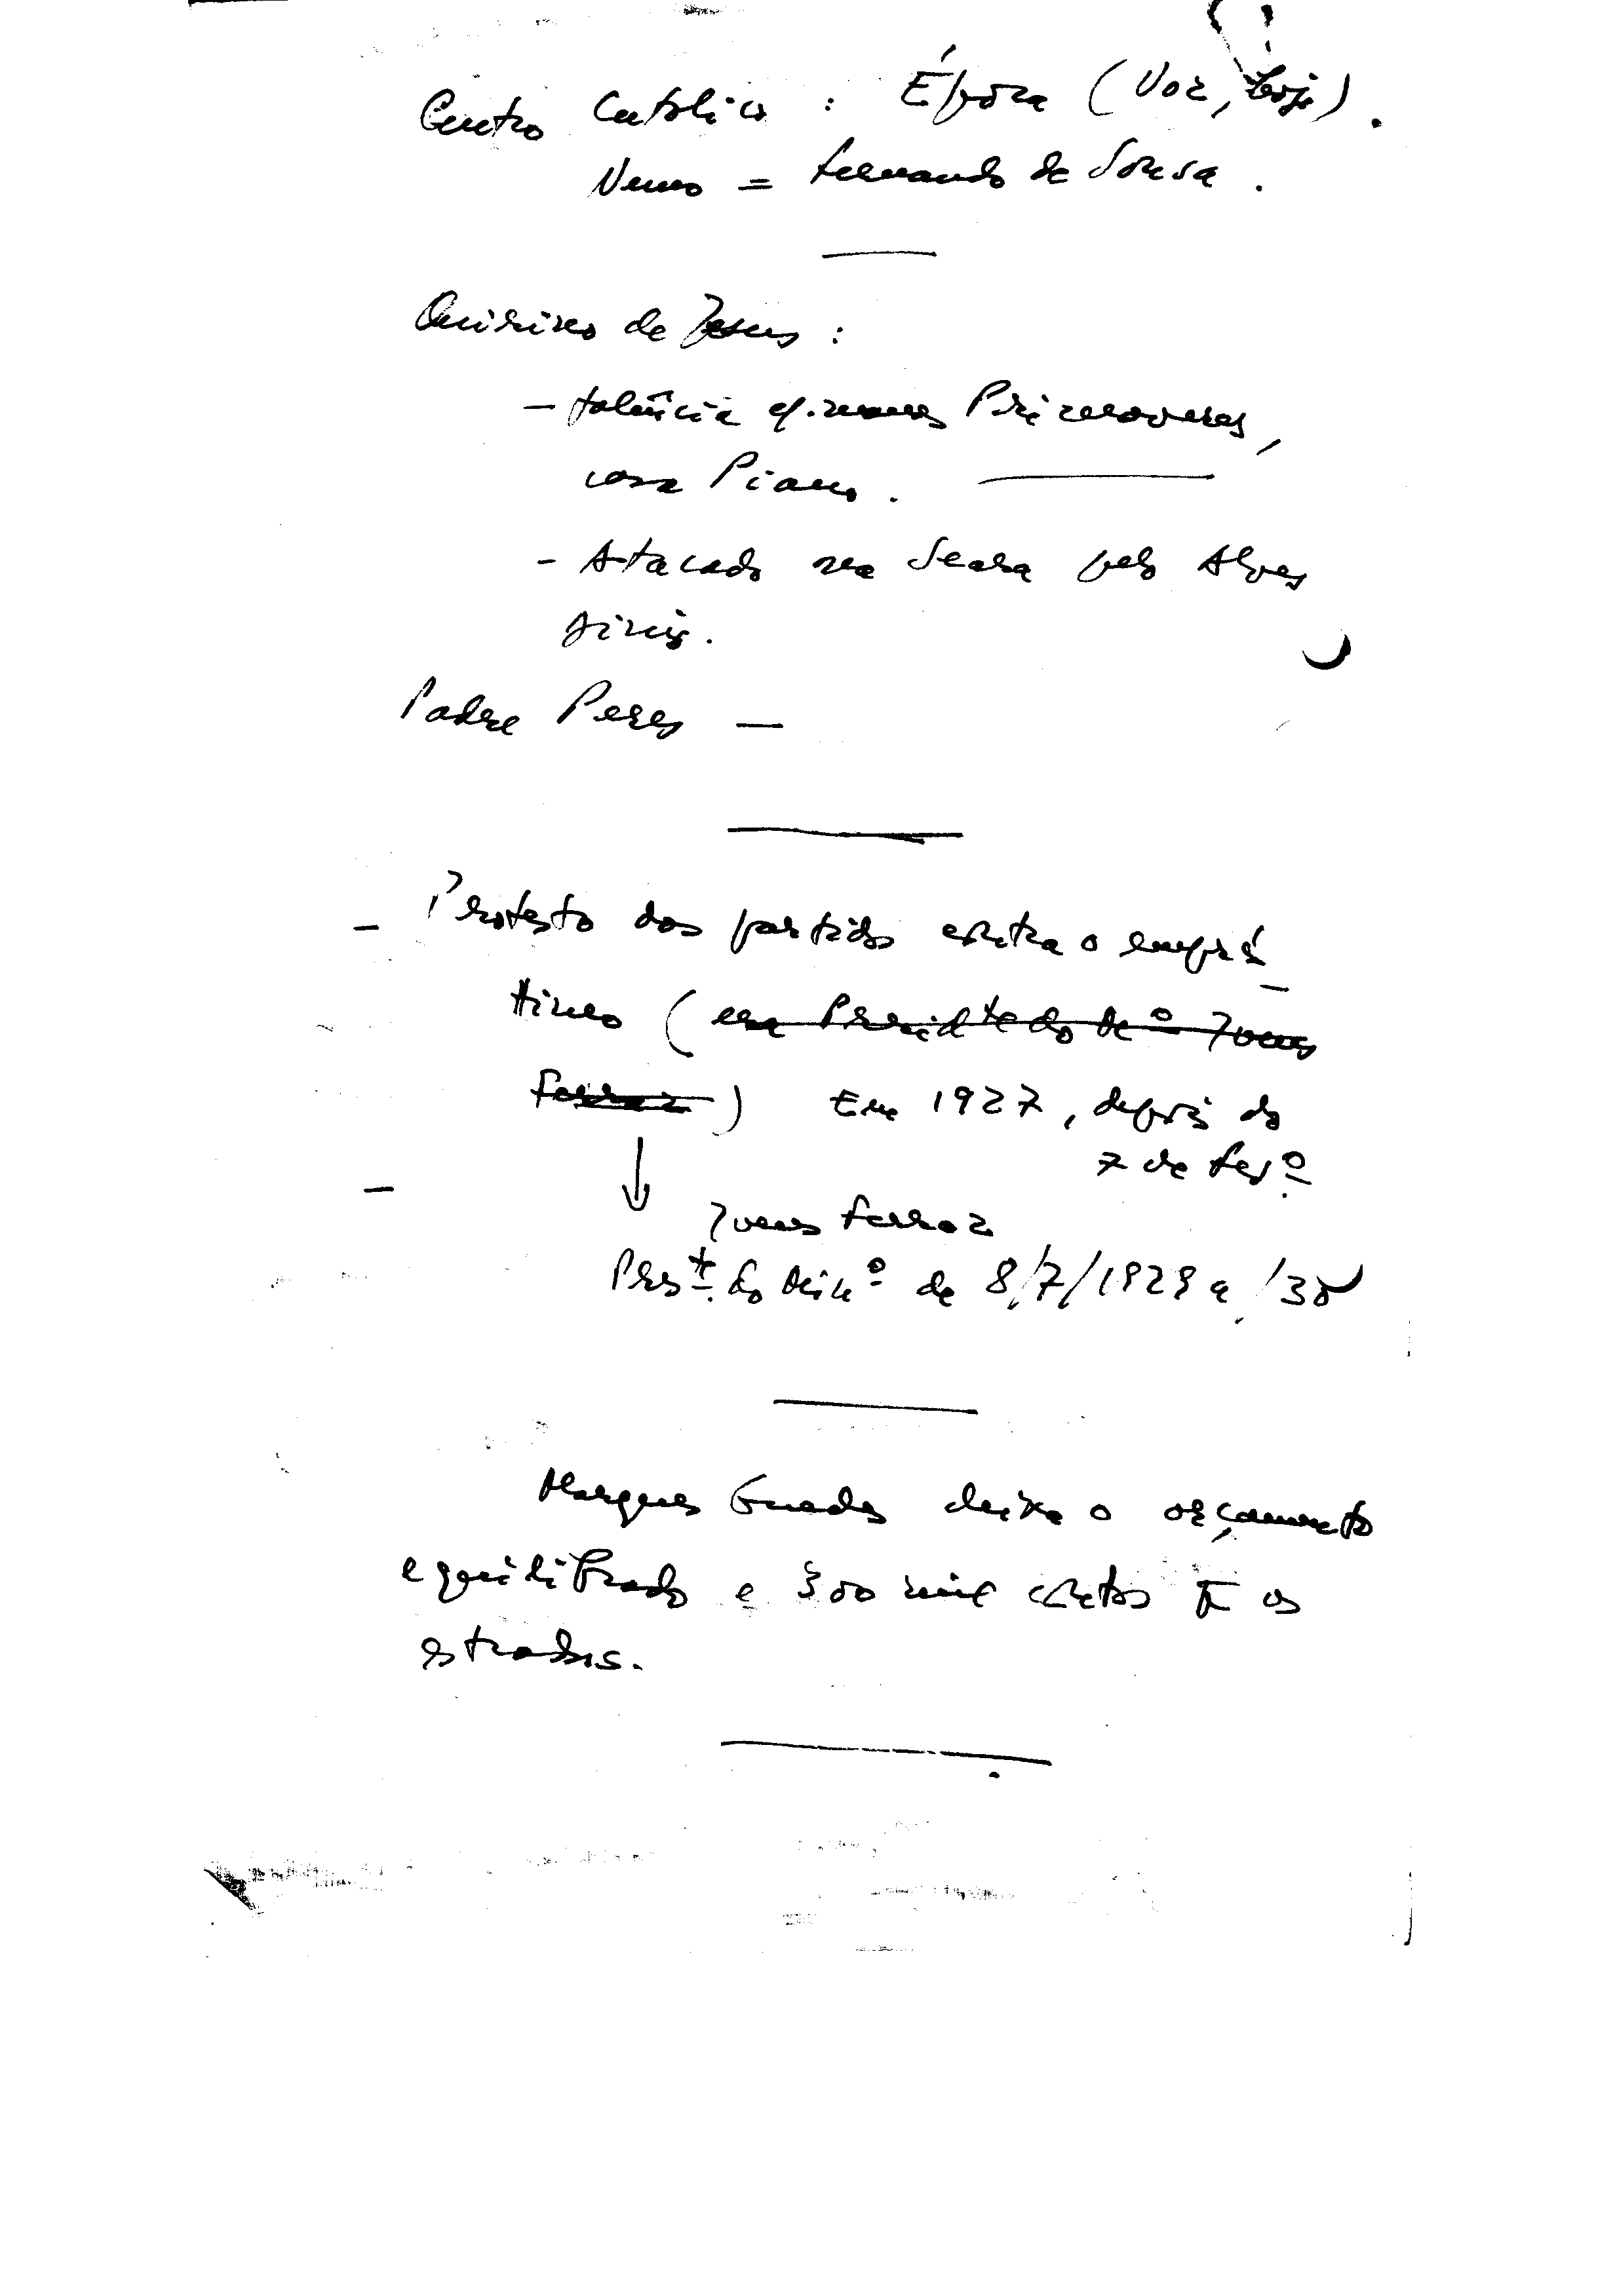 Centro Católico : Época (Voz, hoje).
Nemo = Fernando de Sousa.
Quirino de Jesus :
- falência Primaveras,
casa Piano.
- Atacado na Seara pelo Alves
Padre Peres -
- Protesto dos partidos contra o emprés-
timo (era Presidte do Mº Ivens
Ferraz) Em 1927, depois do
7 de Fevº
- Ivens Ferraz
Prest. do Minº de 8/7/1929 a /30
Marques Guedes deixa o orçamento
equilibrado e 300 mil contos as
estradas.